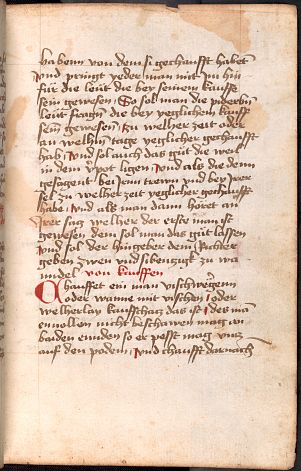 ha benn von dem si gechaufft habent
vnd pringt yeder man mit Im hin
für die leüt die bey seinem kauffe
sein gewesen, So sol man die piderbn
leüt fragn die bey yeglichem kauff
sein gewesen, zu welher zeit oder
an welhem tage yeglicher gechaufft
hab, Vnd sol auch das güt die weil
in dem ypot ligen, vnd als die denn
gesagent bey Jrenn trewn vnd bey Jrer
sel zu welher zeit yeglicher gechaufft
habe, vnd alt man dann höret an
Irer sag welher der erste man ist
gewesen dem sol man das güt lassen
vnd sol der hingeber dem Richter
geben zwen vnd sibenczigk zu wa
nndel von kauffen
Chauffet ein man vischwegenn
oder wanne mit vischen, oder
welherlay kauffschacz das ist, des man
ennollen nicht beschawen mag an
baiden ennden so er pesst mag vncz
auf den podem, vnd chaufft darnach